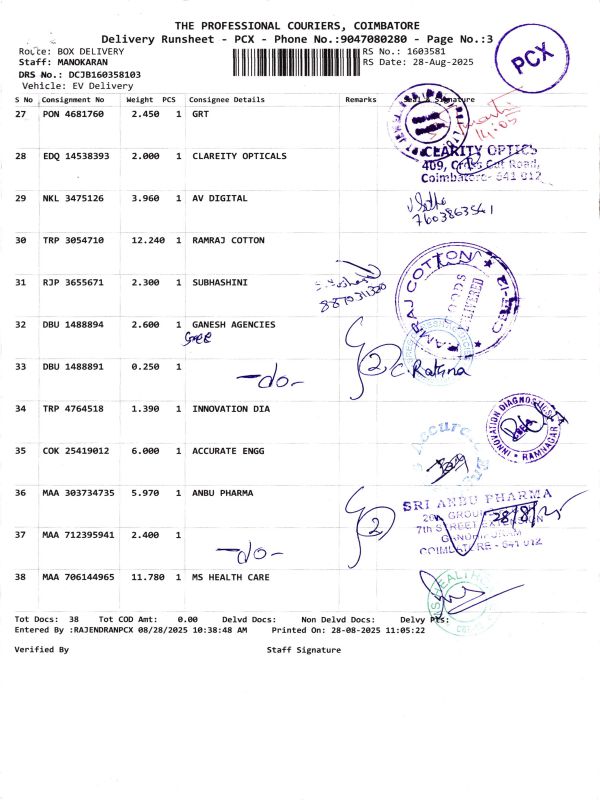 THE PROFESSIONAL COURIERS, COIMBATORE
Delivery Runsheet - PCX - Phone No.:9047080280 - Page No.:3
PCX
Route: BOX DELIVERY RS No.: 1603581
Staff: MANOKARAN RS Date: 28-Aug-2025
DRS No.: DCJB160358103
Vehicle: EV Delivery
S No Consignment No Weight PCS Consignee Details Remarks Seal & Signature
27 PON 4681760 2.450 1 GRT
28 EDQ 14538393 2.000 1 CLAREITY OPTICALS
CLARITY OPTICS
409, Cross Cut Road,
Coimbatore- 641 012
29 NKL 3475126 3.960 1 AV DIGITAL
7603863541
30 TRP 3054710 12.240 1 RAMRAJ COTTON
RAMRAJ COTTON
DELIVERED
CBE-12
31 RJP 3655671 2.300 1 SUBHASHINI
8870311320
32 DBU 1488894 2.600 1 GANESH AGENCIES
33 DBU 1488891 0.250 1
-do-
2 C. Rathna
34 TRP 4764518 1.390 1 INNOVATION DIA
INNOVATION DIAGNOSTICS
RAMNAGAR
35 COK 25419012 6.000 1 ACCURATE ENGG
Accurate
36 MAA 303734735 5.970 1 ANBU PHARMA
2
SRI ANBU PHARMA
7th STREET EXTENSION
COIMBATORE - 641 012
28/8/25
37 MAA 712395941 2.400 1
-do-
38 MAA 706144965 11.780 1 MS HEALTH CARE
Tot Docs: 38 Tot COD Amt: 0.00 Delvd Docs: Non Delvd Docs: Delvy Pts:
Entered By :RAJENDRANPCX 08/28/2025 10:38:48 AM Printed On: 28-08-2025 11:05:22
Verified By Staff Signature